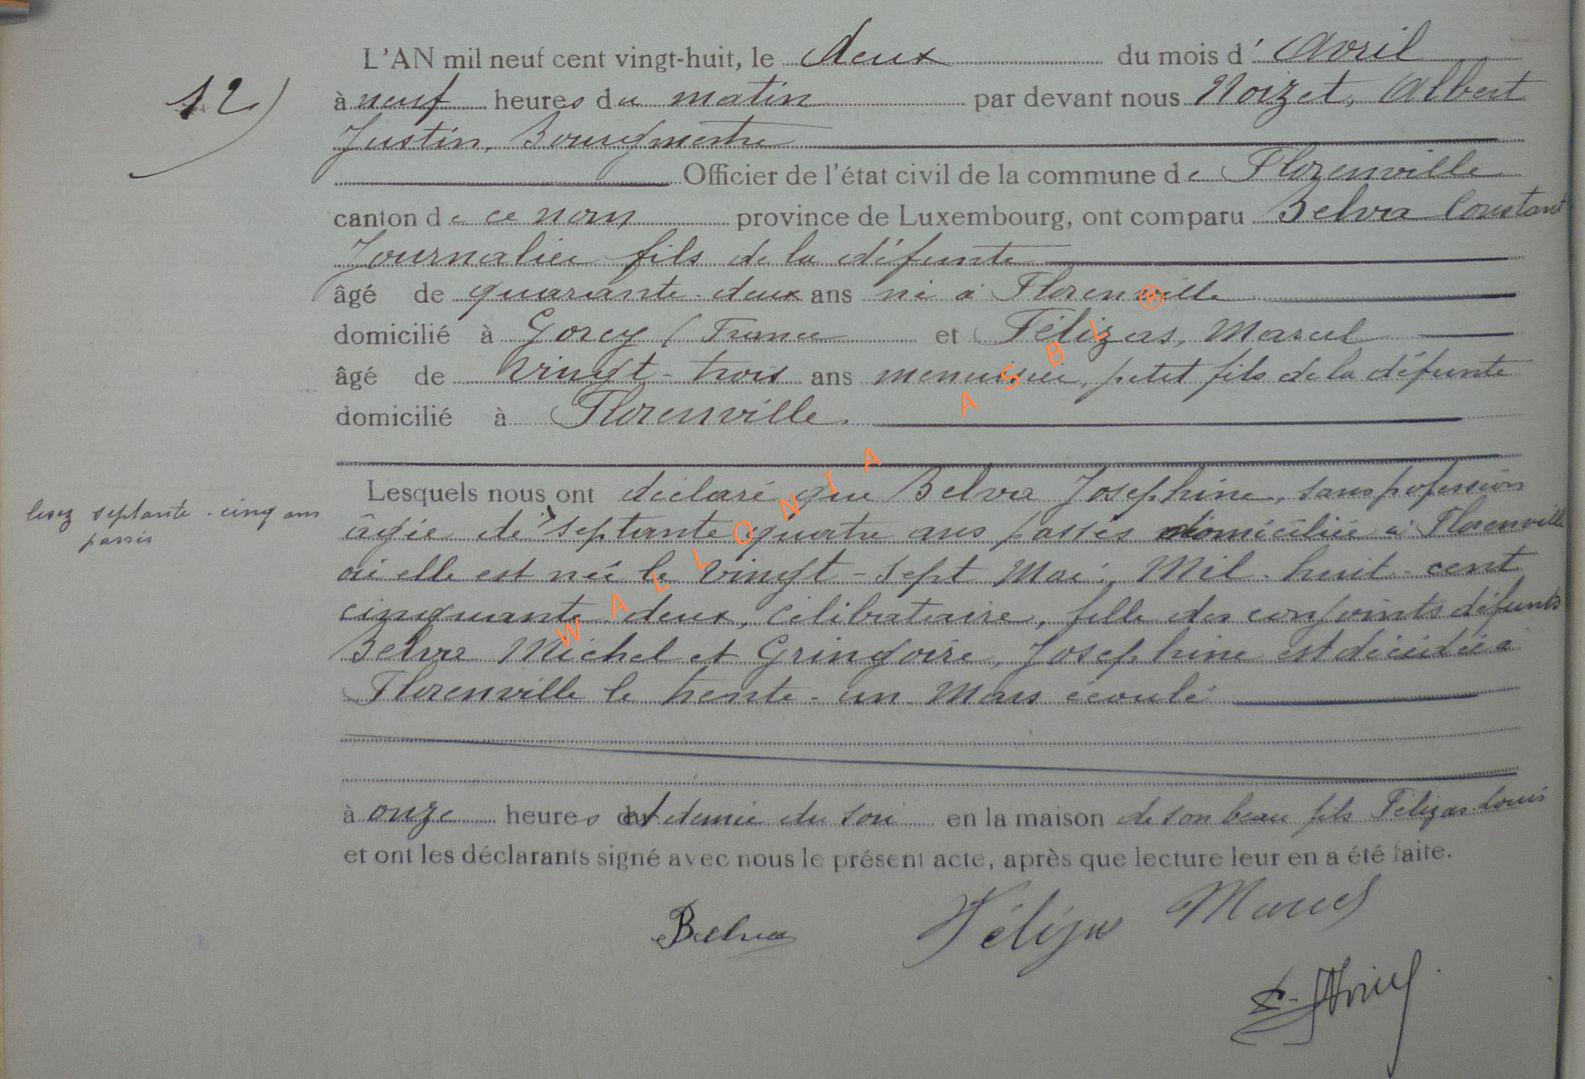 L'AN mil neuf cent vingt-huit, le deux du mois d'Avril
12)
à neuf heures du matin par devant nous Noizet, Albert
Justin, Bourgmestre
Officier de l'état civil de la commune de Florenville
canton de ce nom province de Luxembourg, ont comparu Belva Constant
Journalier fils de la défunte
âgé de quarante-deux ans né à Florenville
domicilié à Gorcy (France et Félizas, Marcel
âgé de vingt-trois ans menuisier, petit fils de la défunte
domicilié à Florenville.
Lesquels nous ont déclaré que Belva Josephine, sans profession
lisez septante-cinq ans
passés
âgée de septante quatre ans passés domiciliée à Florenville
où elle est née le vingt-sept Mai Mil-huit-cent
cinquante-deux, célibataire, fille des conjoints défunts
Belva Michel et Gringoire, Josephine est décédée à
Florenville le trente-un Mars écoulé
à onze heures et demie du soir en la maison de son beau fils Félizas Louis
et ont les déclarants signé avec nous le présent acte, après que lecture leur en a été faite.
Belva Félizas Marcel
WALLONIA ASBL ®